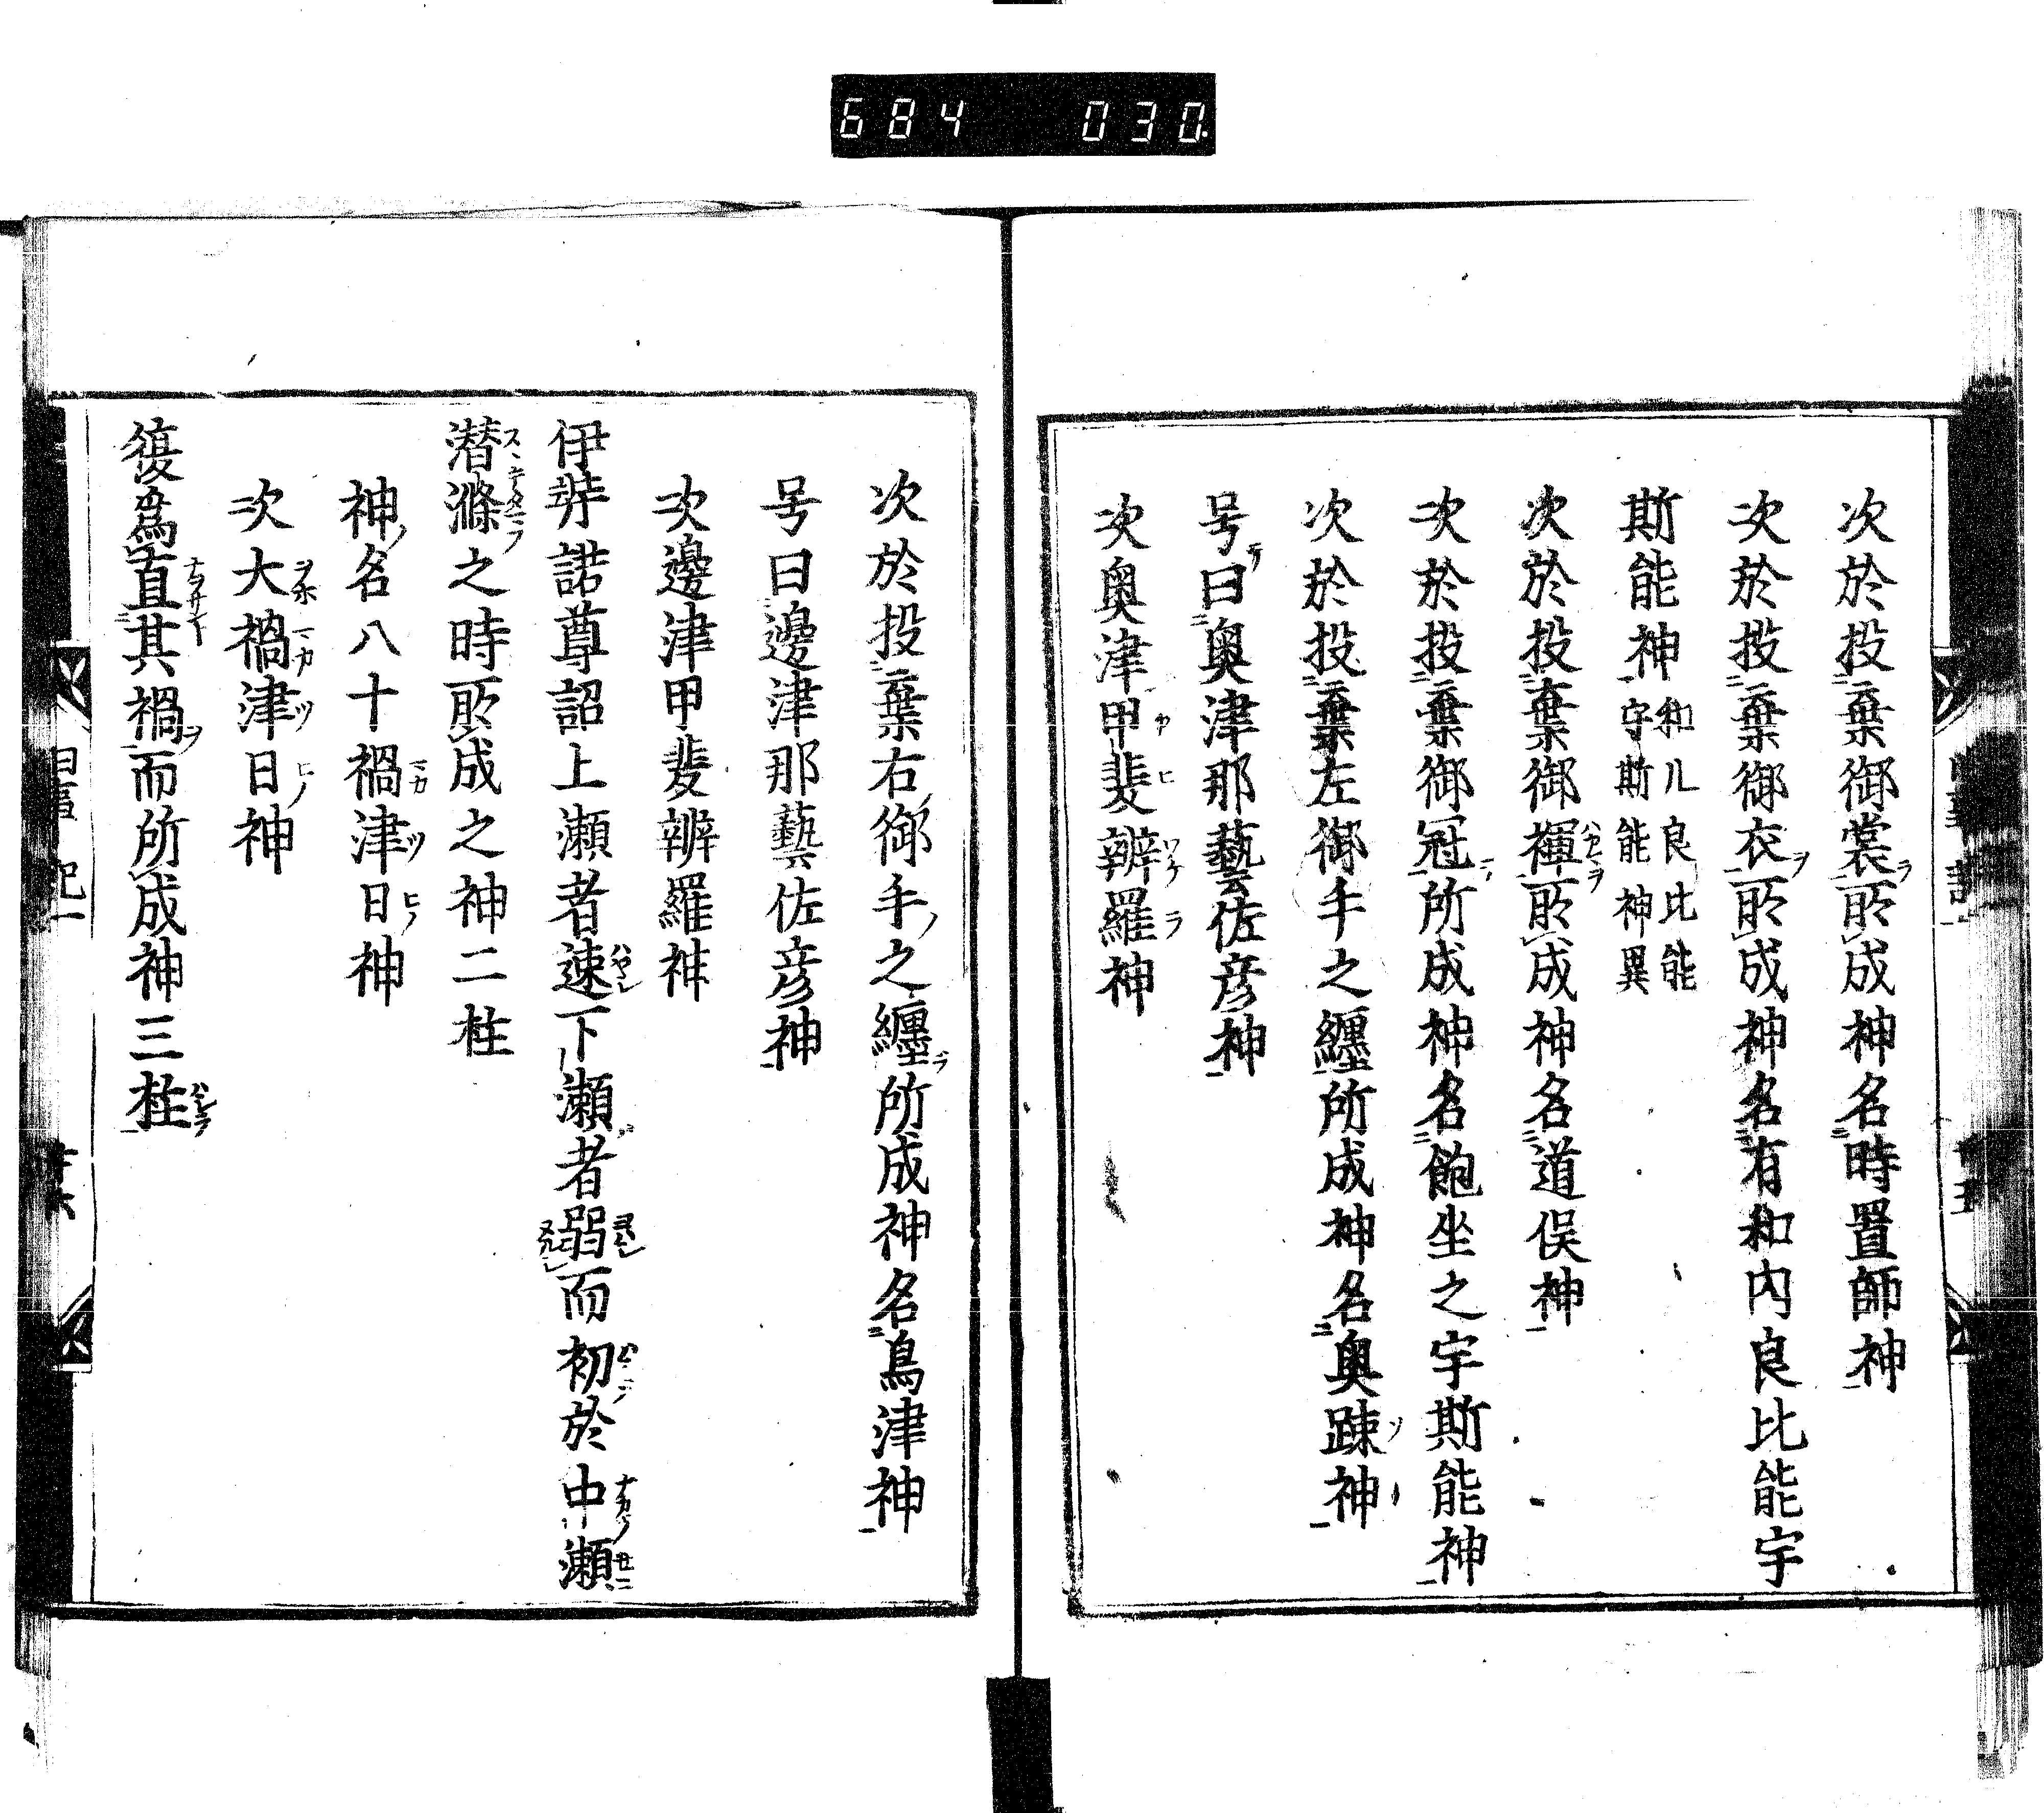 684 030
次於投棄御裳所成神名時置師神
次於投棄御衣所成神名有和内良比能宇
斯能神 和儿良比能
守斯能神異
次於投棄御褌所成神名道俣神
次於投棄御冠所成神名飽坐之宇斯能神
次於投棄左御手之纏所成神名奥踈神
号曰奥津那藝佐彦神
次奥津甲斐辨羅神
次於投棄右御手之纏所成神名鳥津神
号曰邊津那藝佐彦神
次邊津甲斐辨羅神
伊弉諾尊詔上瀬者速下瀬者弱而初於中瀬
潜滌之時所成之神二柱
神名八十禍津日神
次大禍津日神
復爲直其禍而所成神三柱